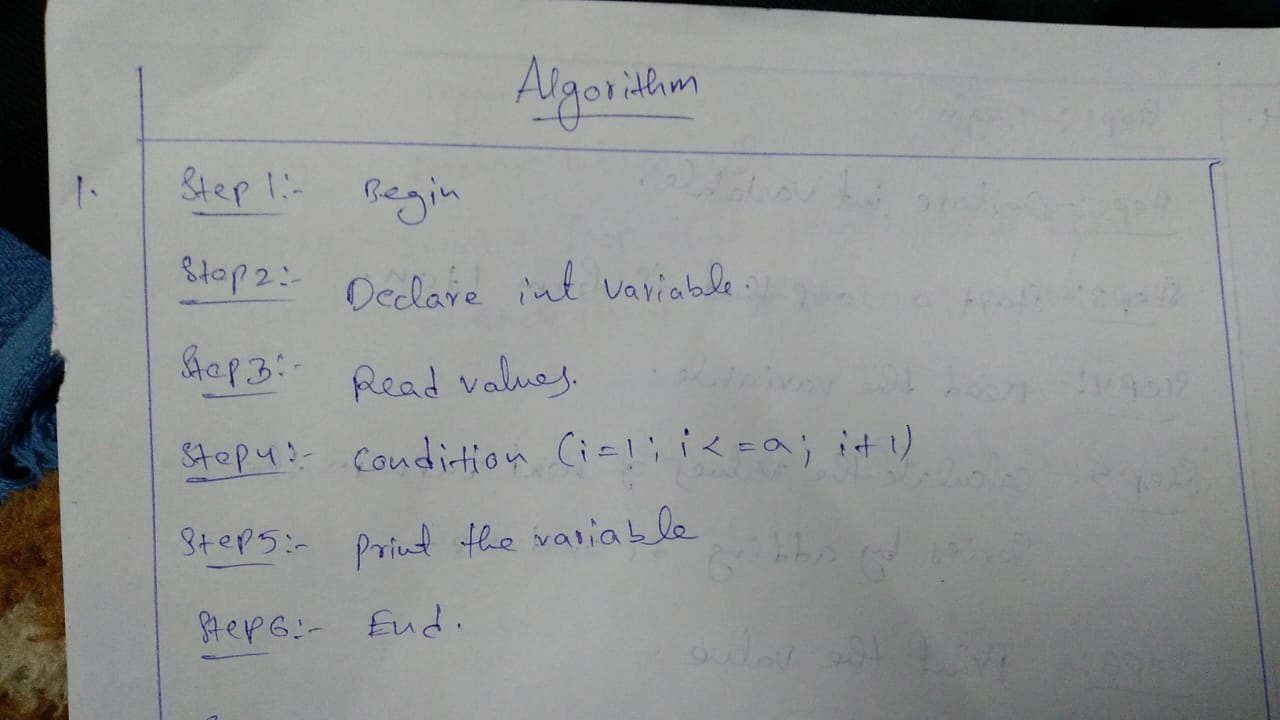 Algorithm
1. Step 1:- Begin
Step 2:- Declare int variable.
Step 3:- Read values.
Step 4:- condition (i=1; i<=a; i+1)
Step 5:- print the variable
Step 6:- End.